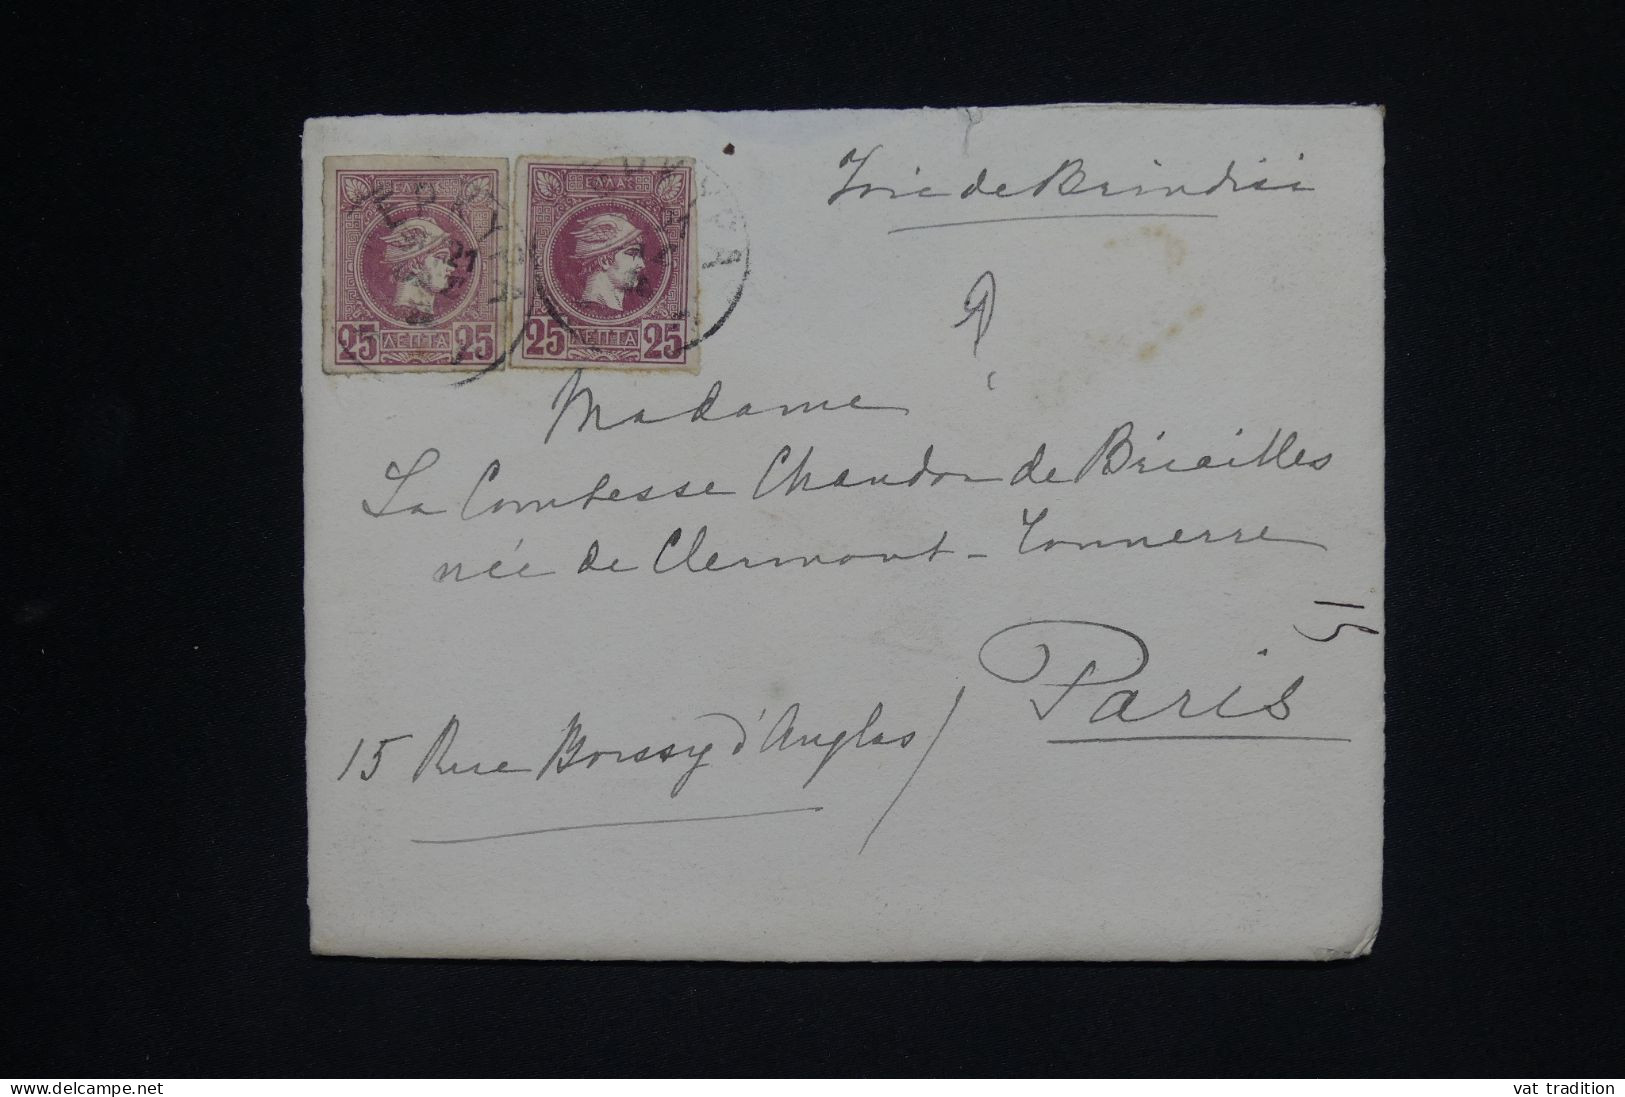 Voie de Brindisi
ΕΛΛΑΣ
25 ΛΕΠΤΑ 25
ΕΛΛΑΣ
25 ΛΕΠΤΑ 25
ΚΕΡΚΥΡΑ
ΚΕΡΚΥΡΑ
Madame
La Comtesse Chandon de Briailles
née de Clermont-Tonnerre
15
Paris
15 Rue Boissy d'Anglas
www.delcampe.net
vat tradition